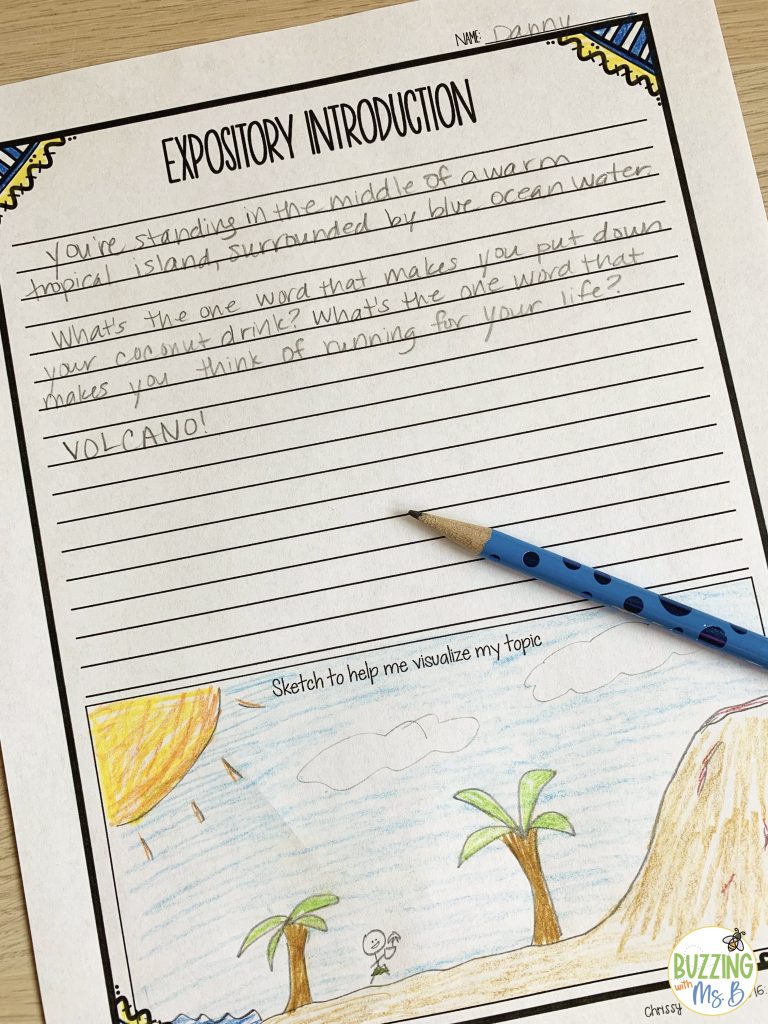 NAME: Danny
EXPOSITORY INTRODUCTION
You're standing in the middle of a warm
tropical island, surrounded by blue ocean water.
What's the one word that makes you put down
your coconut drink? What's the one word that
makes you think of running for your life?
VOLCANO!
Sketch to help me visualize my topic
BUZZING
with
Ms. B
Chrissy